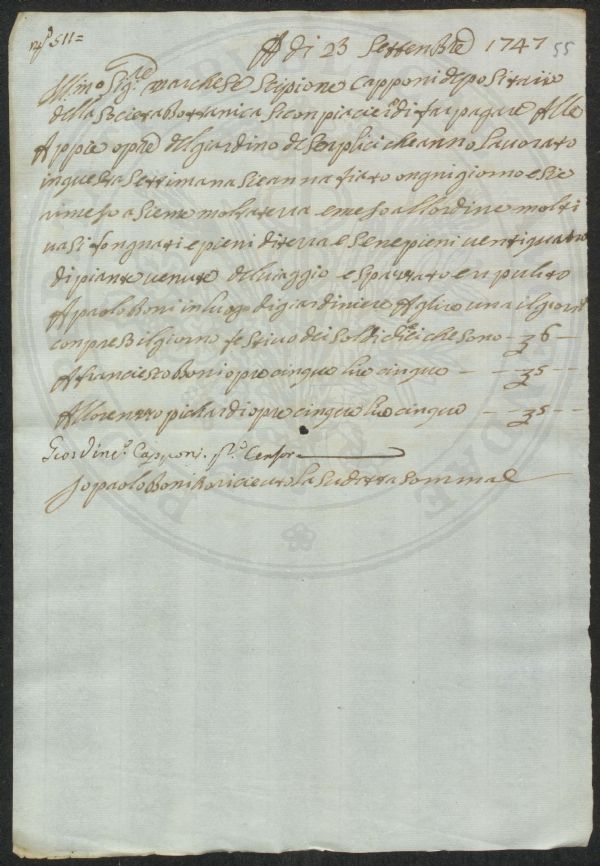 n.° 511=
A di 23 Settenbre 1747
55
Ill.mo Sig.re marchese Scipione Capponi depositario
della Società Bottanica Si conpiacierà di far pagare Alle
Appie opre del giardino de Senplici che anno lavorato
in questa Settimana Si è anna fiato ongni giorno e si è
rimeso a Sieme molta terra e meso all ordine molti
vasi fongnati e pieni di terra e Se ne pieni ventiquatro
di piante venute del viaggio e Spazzato e ripulito
A paolo Boni in luogo di giardiniere A g lire una il giorno
conpreso il giorno festivo dei Soldi dieci che sono — 6 —
A franciesco Boni opre cinque lire cinque — — 5 — —
A llorenzo pichardi opre cinque lire cinque — — 5 — —
Gio: Vinc.° Capponi P.° Censore
Io paolo Boni ho ricieuto la Sudetta Somma